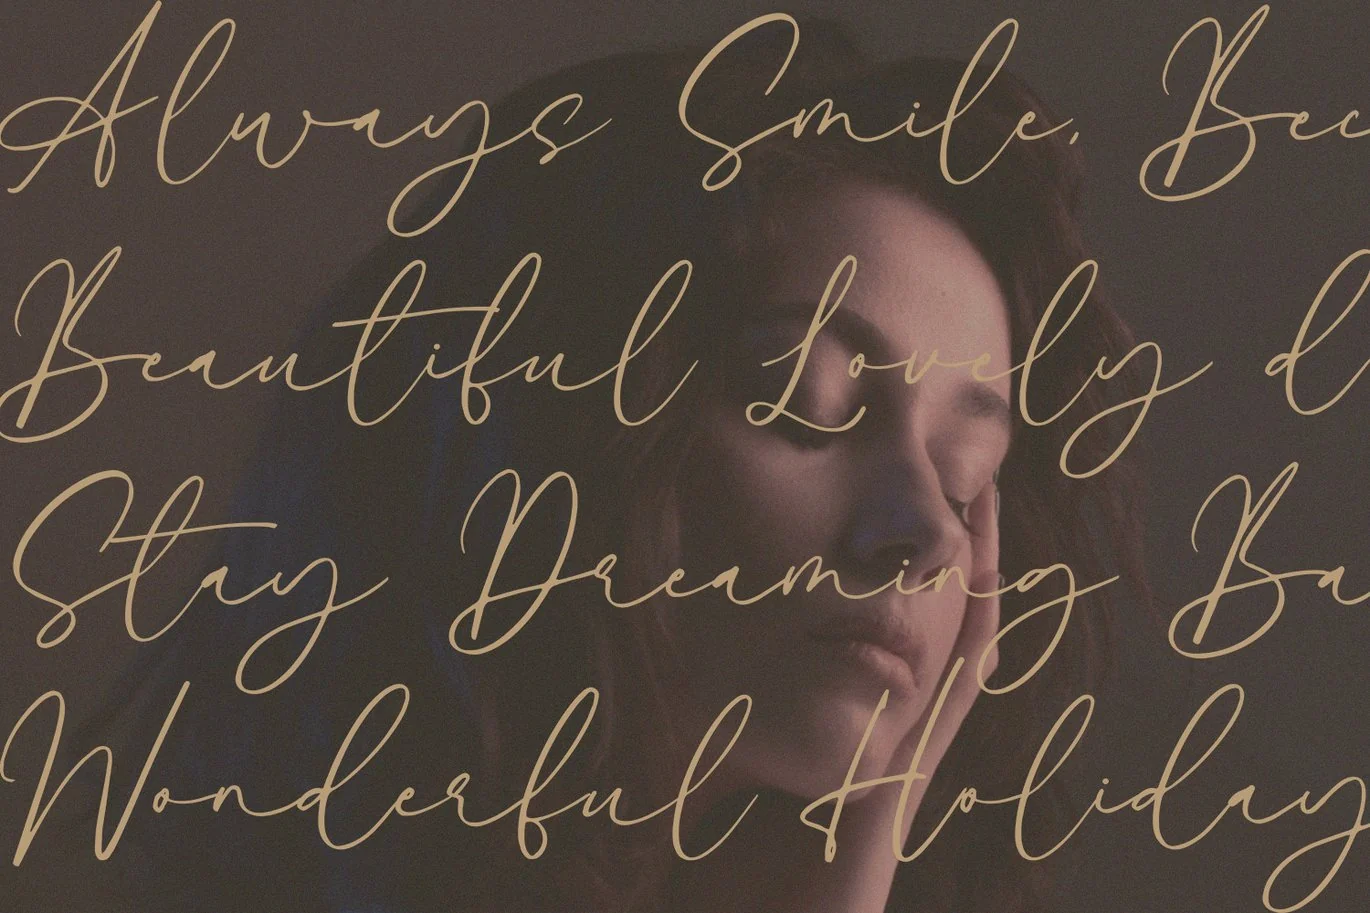 Always Smile, Bec
Beautiful Lovely d
Stay Dreaming Ba
Wonderful Holiday